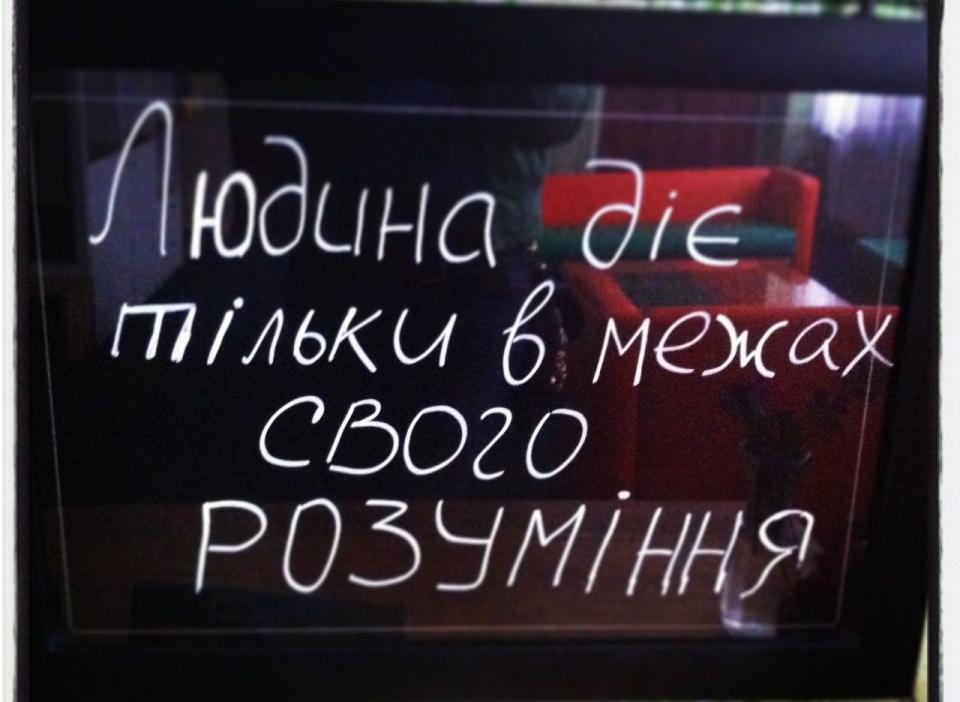 Людина діє
тільки в межах
свого
РОЗУМІННЯ